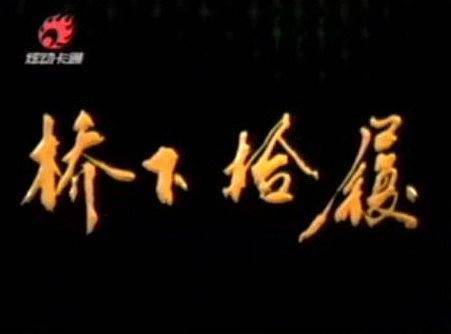 炫动卡通
桥下拾履